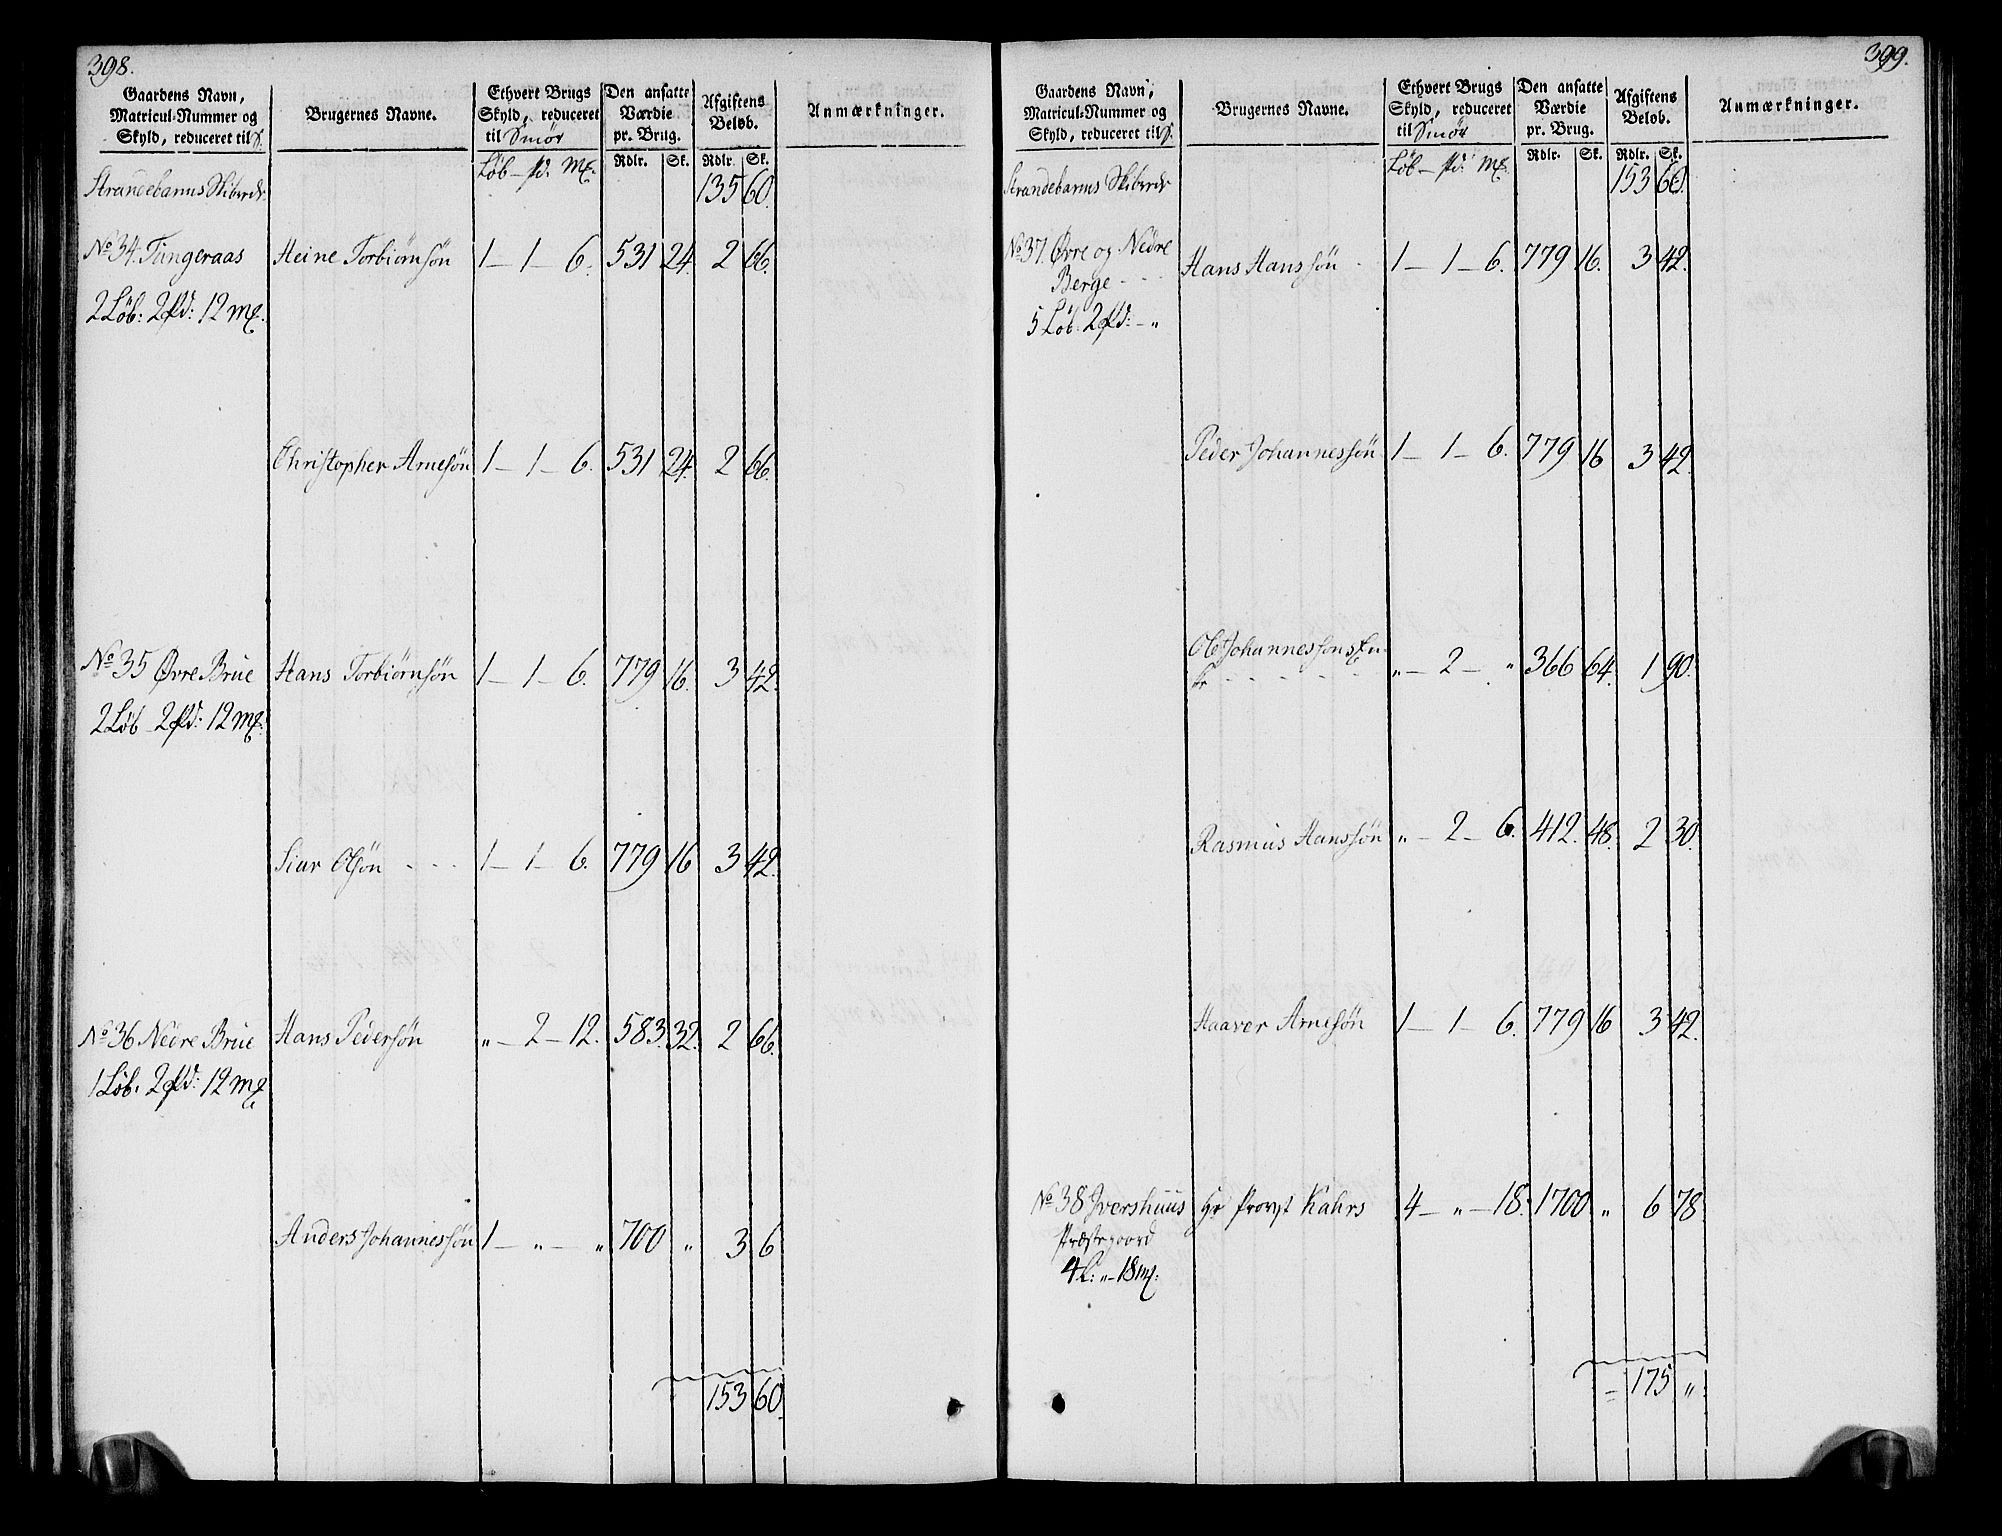 398.
Gaardens Navn, Matricul-Nummer og Skyld, reduceret til
Brugernes Navne.
Ethvert Brugs Skyld, reduceret til Smör
Den ansatte Værdie pr. Brug.
Afgiftens Beløb.
Anmærkninger.
Løb – pd: Mk.
Rdlr. Sk. Rdlr. Sk.
Strandebarms Skibrede 135 60.
No 34. Tangeraas Heine Torbiörnsön 1 – 1 – 6. 531 24. 2 66.
2 Løb: 2 pd: 12 mk.
Christopher Arnesön 1 – 1 – 6. 531 24. 2 66.
No 35 Øvre Brue Hans Torbiörnsön 1 – 1 – 6. 779 16. 3 42.
2 Løb – 2 pd: 12 mk.
Siar Olsön - - - 1 – 1 – 6. 779 16 3 42.
No 36 Nedre Brue Hans Pedersön " – 2 – 12. 583. 32. 2 66.
1 Løb. 2 pd: 12 mk
Anders Johannessön 1 – " – " 700 " 3 6
153 60.
399.
Gaardens Navn, Matricul-Nummer og Skyld, reduceret til
Brugernes Navne.
Ethvert Brugs Skyld, reduceret til Smör
Den ansatte Værdie pr. Brug.
Afgiftens Beløb.
Anmærkninger.
Løb – pd: Mk.
Rdlr. Sk. Rdlr. Sk.
Strandebarms Skibrede 153 60.
No 37. Øvre og Nedre Hans Hanssön - 1 – 1 – 6. 779 16. 3 42.
Berge - - -
5 Løb. 2 pd: – "
Peder Johannessön 1 – 1 – 6. 779 16 3 42.
Ole Johannessöns En-
ke - - - - - - " – 2 – " 366 64. 1 90.
Rasmus Hanssön " – 2 – 6. 412. 48. 2 30.
Haaver Arnesön 1 – 1 – 6. 779 16 3 42.
No 38 Ivershuus Hr Provst Kahrs 4 – " – 18. 1700 " 6 78
Præstegaard
4 L: " – 18 mk.
= 175 "